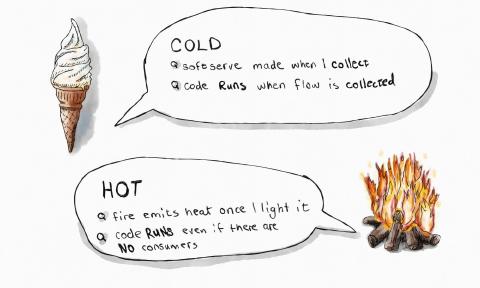 COLD
softserve made when I collect
code Runs when flow is collected
HOT
fire emits heat once I light it
code RUNS even if there are
NO consumers